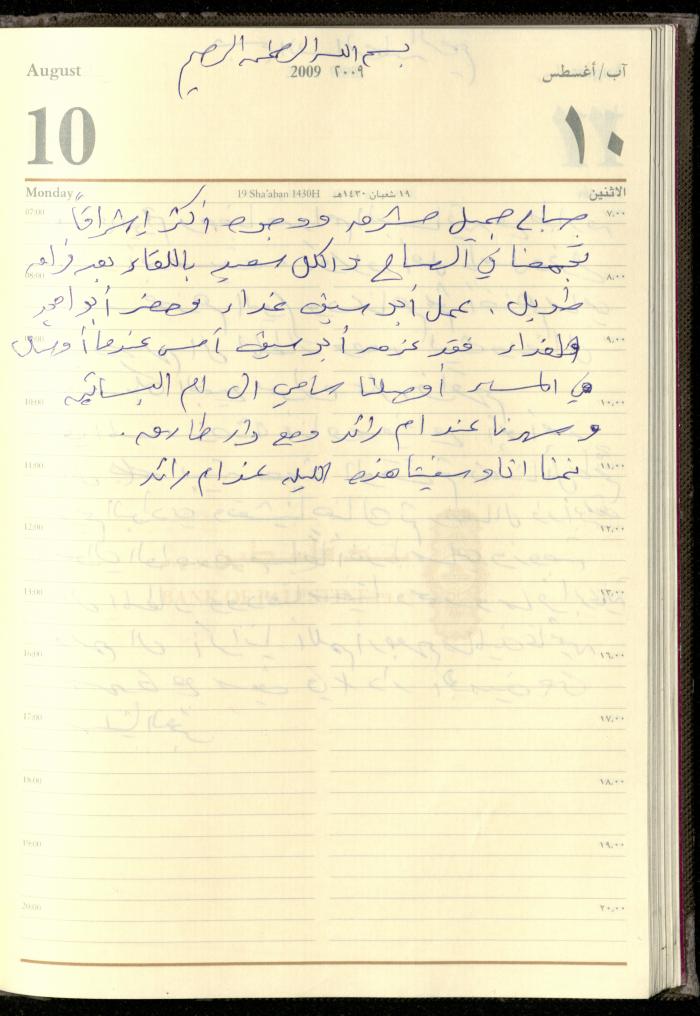 بسم الله الرحمن الرحيم
August 2009 ٢٠٠٩ آب/أغسطس
10 ١٠
Monday 19 Sha'aban 1430H ١٩ شعبان ١٤٣٠هـ الاثنين
07:00 صباح جميل مشرق ووجوه أكثر إشراقاً ٧,٠٠
تجمعنا في الصباح والكل سعيد باللقاء بعد فراق
08:00 ٨,٠٠
طويل. عمل أبو سيف غداء وحضر أبو احمد
الغداء فقد عزمه أبو سيف أمس عندما أوصل ٩,٠٠
في المساء أوصلنا سامي الى ام
10:00 ١٠,٠٠
وسهرنا عند ام رائد ومع دار طارق.
11:00 نمنا انا و هذه الليله عند ام رائد ١١,٠٠
12:00 ١٢,٠٠
13:00 ١٣,٠٠
BANK OF PALESTINE
16:00 ١٦,٠٠
17:00 ١٧,٠٠
18:00 ١٨,٠٠
19:00 ١٩,٠٠
20:00 ٢٠,٠٠